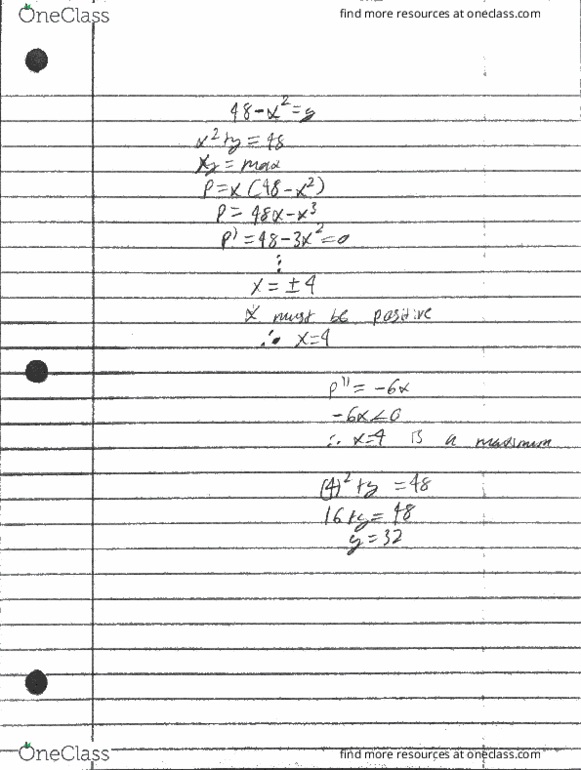 OneClass
find more resources at oneclass.com
48-x²=y
x²+y=48
xy = max
P=x(48-x²)
P= 48x-x³
P' = 48-3x²=0
⋮
x = ±4
x must be positive
∴ x=4
P'' = -6x
-6x<0
∴ x=4 is a maximum
(4)²+y =48
16+y=48
y=32
OneClass
find more resources at oneclass.com